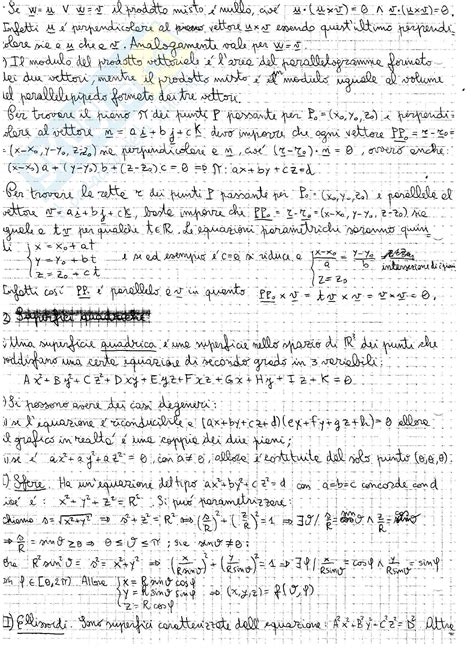 · Se w = u ∨ w = v il prodotto misto è nullo, cioè u·(u×v)=0 ∧ v·(u×v)=0.
Infatti u è perpendicolare al vettore u×v essendo quest'ultimo perpendi-
colare sia a u che a v. Analogamente vale per w = v.
·) Il modulo del prodotto vettoriale è l'area del parallelogramma formato
dei due vettori, mentre il prodotto misto è in modulo uguale al volume
del parallelepipedo formato dai tre vettori.
Per trovare il piano π dei punti P passante per P₀=(x₀,y₀,z₀) e perpendi-
colare al vettore n = a i + b j + c k devo imporre che ogni vettore PP₀ = r - r₀ =
=(x-x₀, y-y₀, z-z₀) sia perpendicolare a n, cioè (r-r₀)·n = 0, ovvero anche:
(x-x₀)a + (y-y₀)b + (z-z₀)c = 0 ⇒ π: ax+by+cz=d
Per trovare la retta r dei punti P passante per P₀=(x₀,y₀,z₀) e parallela al
vettore v = a i + b j + c k, basta imporre che PP₀ = r - r₀ = (x-x₀, y-y₀, z-z₀) sia
uguale a t v per qualche t∈R. Le equazioni parametriche saranno quin-
di { x = x₀ + at
y = y₀ + bt e se ad esempio c=0 si riduce a { (x-x₀)/a = (y-y₀)/b
z = z₀ + ct z = z₀ intersezione di piani
Infatti così PP₀ è parallelo a v in quanto PP₀ × v = t v × v = v × v = 0.
2) Superfici quadriche
·) Una superficie quadrica è una superficie nello spazio di R³ dei punti che
soddisfano una certa equazione di secondo grado in 3 variabili:
Ax² + By² + Cz² + Dxy + Eyz + Fxz + Gx + Hy + Iz + K = 0
·) Si possono avere dei casi degeneri:
i) se l'equazione è riconducibile a (ax+by+cz+d)(ex+fy+gz+h)=0 allora
il grafico in realtà è una coppia di piani;
ii) se è ax²+ay²+az²=0, con a≠0, allora è costituita dal solo punto (0,0,0).
I) Sfere. Ha un'equazione del tipo ax²+by²+cz²=d con a=b=c concorde con d
cioè è: x²+y²+z²=R². Si può parametrizzare:
Chiamo s=√(x²+y²) ⇒ s²+z²=R² ⇔ (s/R)²+(z/R)²=1 ⇒ ∃ϑ / s/R = sinϑ ∧ z/R = cosϑ
⇒ s/R = sinϑ ≥ 0 ⇒ 0 ≤ ϑ ≤ π; sia sinϑ≠0:
Ora R²sin²ϑ = s² = x²+y² ⇒ (x/Rsinϑ)²+(y/Rsinϑ)²=1 ⇒ ∃φ / x/Rsinϑ = cosφ ∧ y/Rsinϑ = sinφ
φ∈[0,2π). Allora { x = R sinϑ cosφ
y = R sinϑ sinφ ⇒ (x,y,z) = f(ϑ,φ)
z = R cosϑ
II) Ellissoidi. Sono superfici caratterizzate dall'equazione: A²x²+B²y²+C²z²=D². Altre